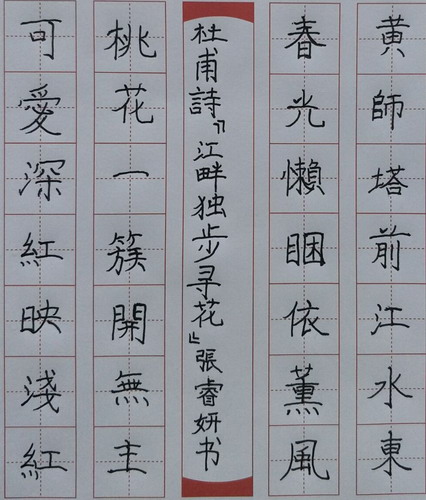 黄師塔前江水東
春光懶睏依薰風
杜甫詩『江畔独步寻花』張睿妍书
桃花一簇開無主
可愛深紅映淺紅